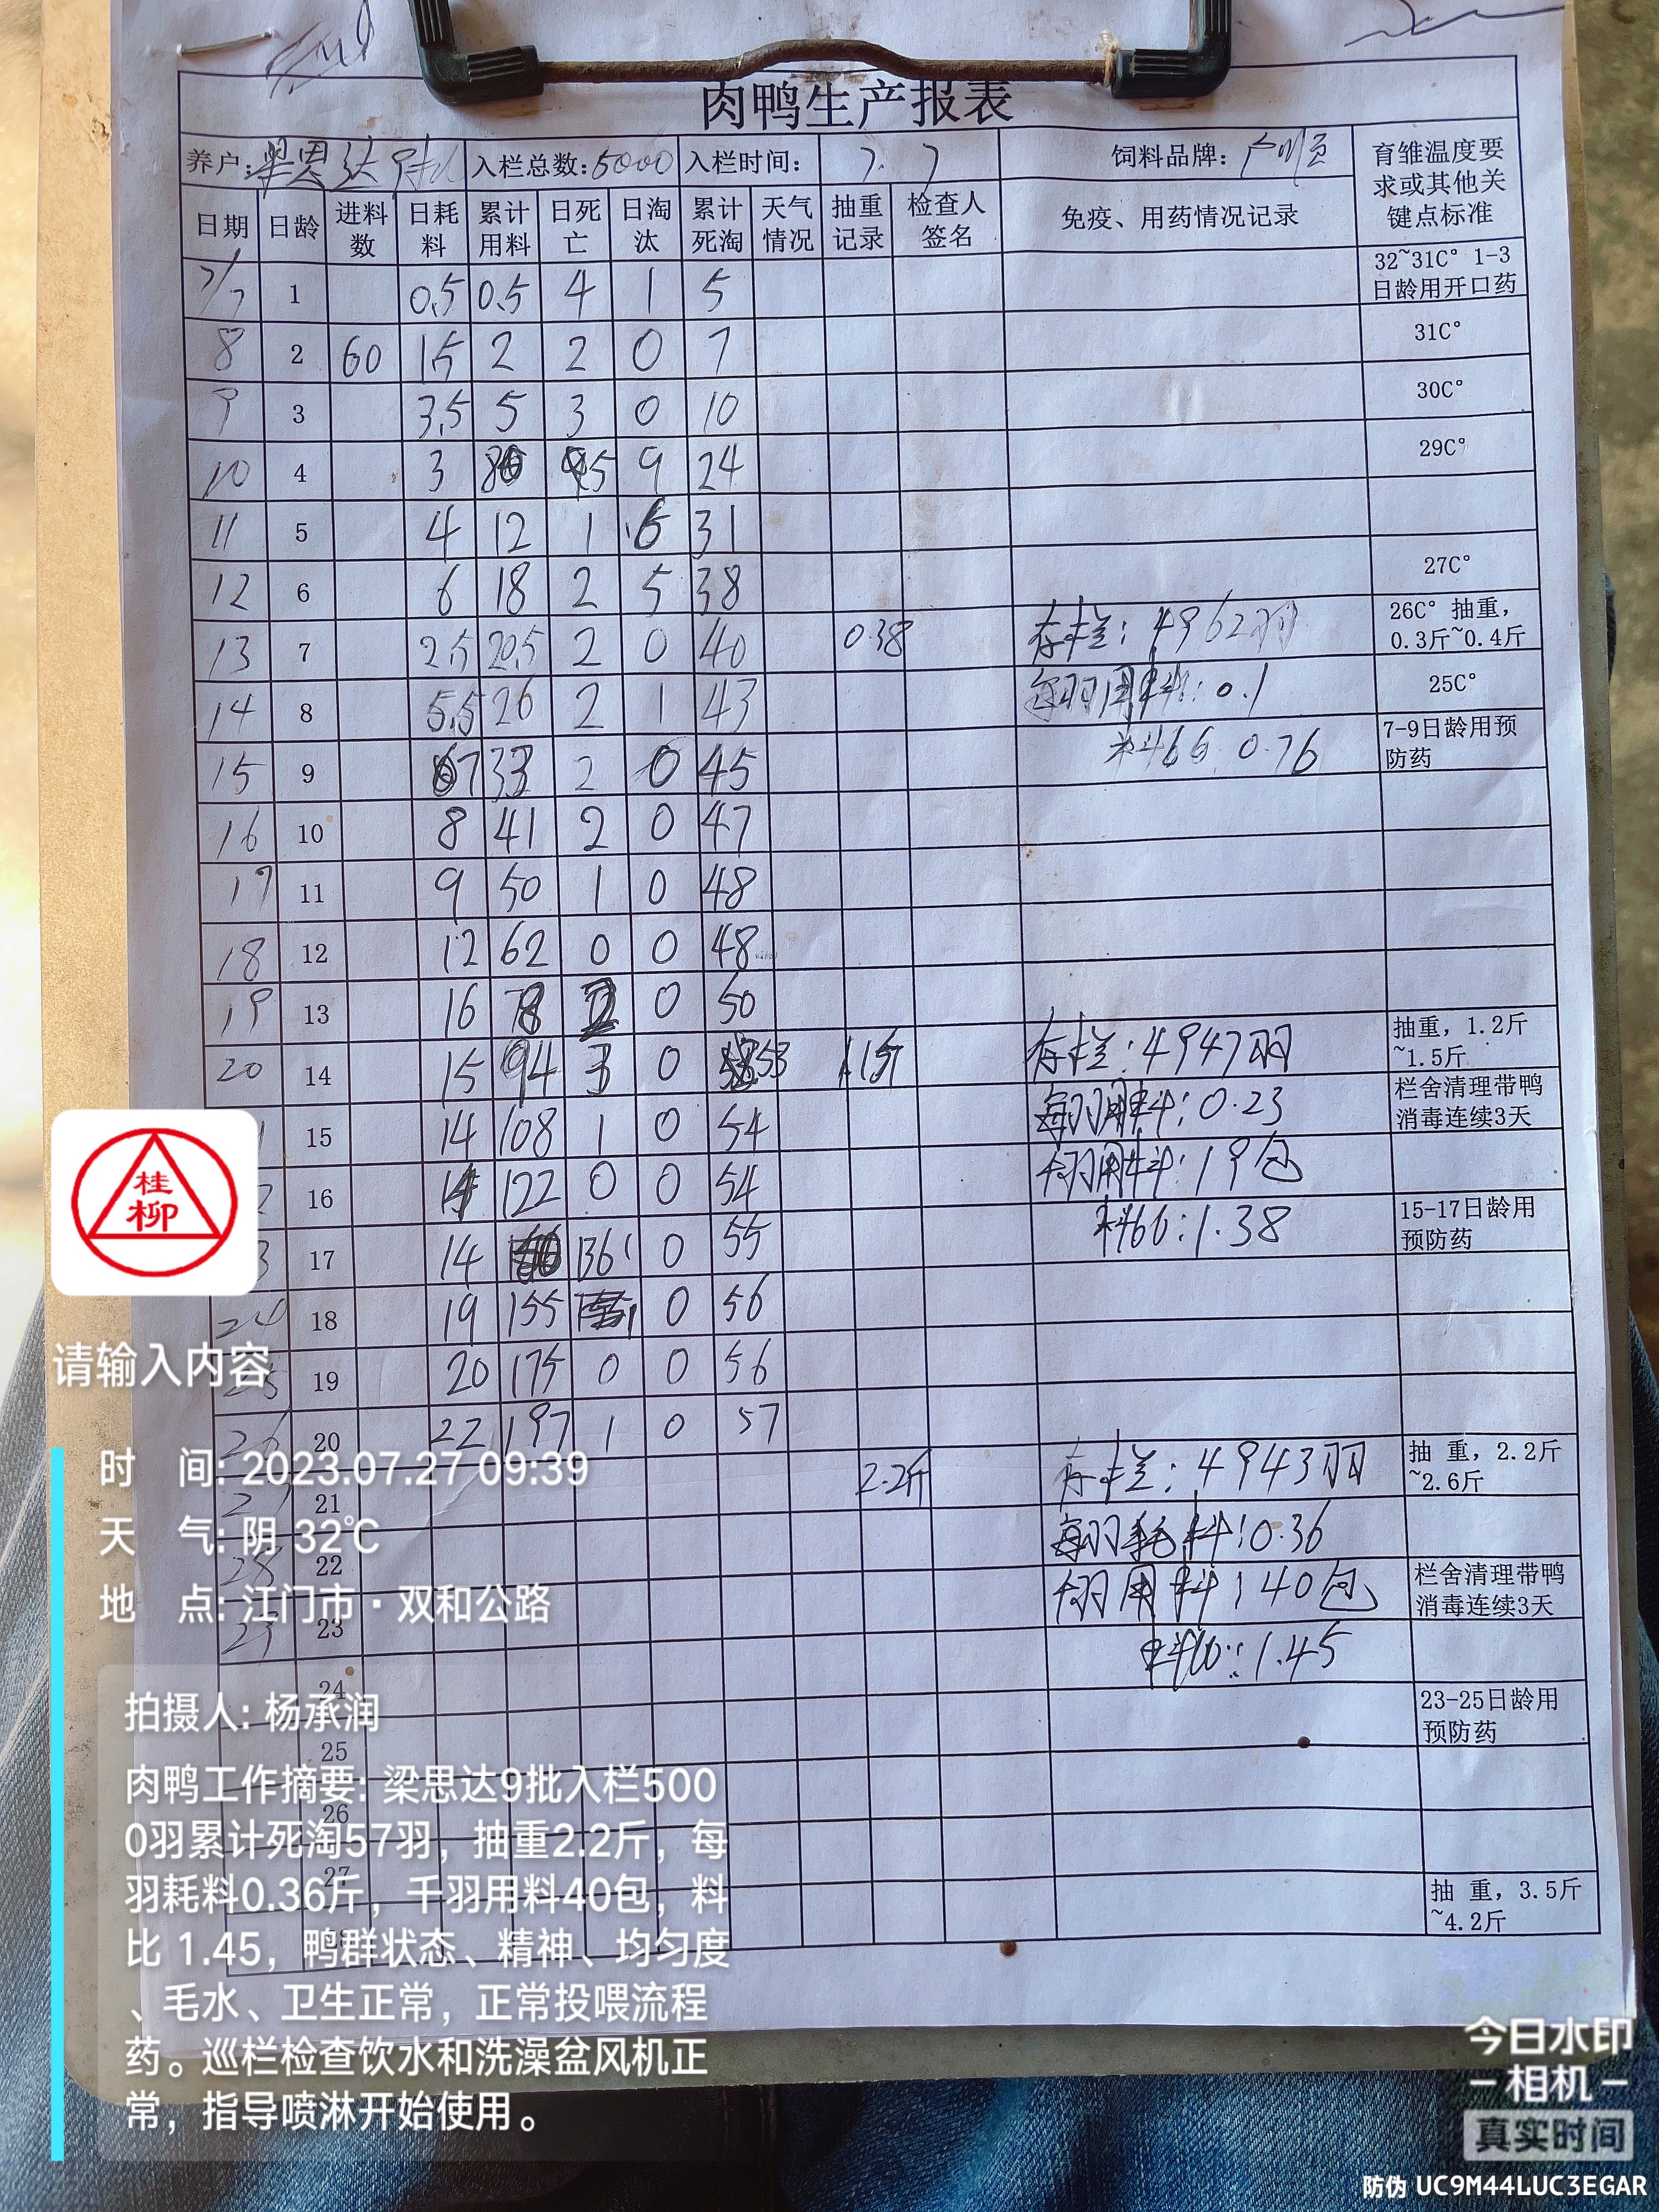 肉鸭生产报表
养户: 梁思达 入栏总数: 5000 入栏时间: 7. 7 饲料品牌: 育雏温度要求或其他关键点标准
日期 日龄 进料数 日耗料 累计用料 日死亡 日淘汰 累计死淘 天气情况 抽重记录 检查人签名 免疫、用药情况记录
7/7 1 0.5 0.5 4 1 5 32~31C° 1-3日龄用开口药
8 2 60 1.5 2 2 0 7 31C°
9 3 3.5 5 3 0 10 30C°
10 4 3 8 5 9 24 29C°
11 5 4 12 1 6 31
12 6 6 18 2 5 38 27C°
13 7 2.5 20.5 2 0 40 0.38 存栏: 4962羽 26C° 抽重, 0.3斤~0.4斤
14 8 5.5 26 2 1 43 每羽用料: 0.1 25C°
15 9 7 33 2 0 45 料比: 0.76 7-9日龄用预防药
16 10 8 41 2 0 47
17 11 9 50 1 0 48
18 12 12 62 0 0 48
19 13 16 78 2 0 50
20 14 15 94 3 0 53 1.1斤 存栏: 4947羽 抽重, 1.2斤~1.5斤
15 14 108 1 0 54 每羽用料: 0.23 栏舍清理带鸭消毒连续3天
16 14 122 0 0 54 千羽用料: 19包
17 14 136 1 0 55 料比: 1.38 15-17日龄用预防药
24 18 19 155 1 0 56
25 19 20 175 0 0 56
26 20 22 197 1 0 57
21 2.2斤 存栏: 4943羽 抽 重, 2.2斤~2.6斤
28 22 每羽耗料: 0.36
23 千羽用料: 40包 栏舍清理带鸭消毒连续3天
24 料比: 1.45
25 23-25日龄用预防药
26
27
抽 重, 3.5斤~4.2斤
桂
柳
请输入内容
时 间: 2023.07.27 09:39
天 气: 阴 32℃
地 点: 江门市·双和公路
拍摄人: 杨承润
肉鸭工作摘要: 梁思达9批入栏500
0羽累计死淘57羽，抽重2.2斤，每
羽耗料0.36斤，千羽用料40包，料
比 1.45，鸭群状态、精神、均匀度
、毛水、卫生正常，正常投喂流程
药。巡栏检查饮水和洗澡盆风机正
常，指导喷淋开始使用。
今日水印
相机
真实时间
防伪 UC9M44LUC3EGAR